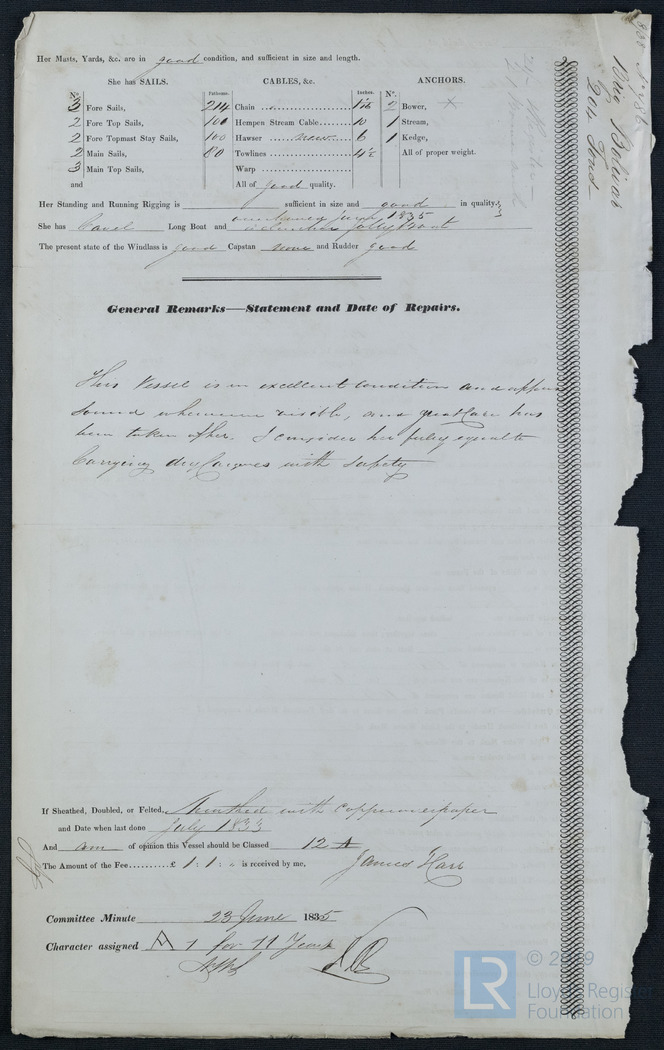 Her Masts, Yards, &c. are in good condition, and sufficient in size and length.
She has SAILS.
CABLES, &c.
ANCHORS.
N.
Fathoms.
Inches.
N.
3 Fore Sails,
2 Fore Top Sails,
2 Fore Topmast Stay Sails,
2 Main Sails,
3 Main Top Sails,
and
214 Chain
100 Hempen Stream Cable 10
100 Hawser new 6
80 Towlines
Warp
All of good quality.
2 Bower,
1 Stream,
1 Kedge,
All of proper weight.
Her Standing and Running Rigging is sufficient in size and good in quality.
June 1835
She has Long Boat and Jolly Boat
The present state of the Windlass is good Capstan none and Rudder good
General Remarks—Statement and Date of Repairs.
This Vessel is in excellent condition and
sound wherever visible, and great care has
been taken of her. I consider her fully equal to
Carrying dry Cargoes with safety
If Sheathed, Doubled, or Felted, Sheathed with copper over paper
and Date when last done July 1833
And am of opinion this Vessel should be Classed 12 A
The Amount of the Fee £ 1 : 1 : is received by me, James
Committee Minute 23 June 1835
Character assigned A 1 for 11 Years
Brig Bolivar
Tons
LR
© 2019
Lloyd's Register
Foundation